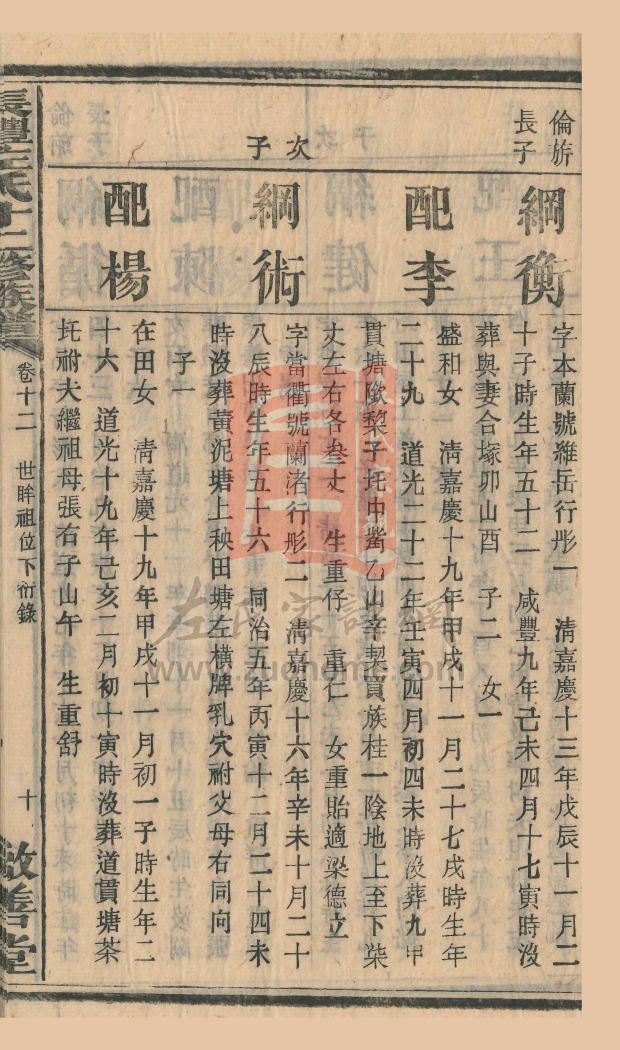 倫旂
長子
綱衡
字本蘭號維岳行彤一　清嘉慶十三年戊辰十一月二
十子時生年五十二　咸豐九年己未四月十七寅時沒
葬與妻合塚卯山酉　子二　女一
配李
盛和女　清嘉慶十九年甲戌十一月二十七戌時生年
二十九　道光二十二年壬寅四月初四未時沒葬九甲
貫塘歐棃子圫中嘴乙山辛契買族桂一陰地上至下柒
丈左右各叁丈　生重仔　重仁　女重貽適梁德立
次子
綱術
字當衢號蘭渚行彤二　清嘉慶十六年辛未十月二十
八辰時生年五十六　同治五年丙寅十二月二十四未
時沒葬黃泥塘上秧田塘左橫牌乳穴祔父母右同向
子一
配楊
在田女　清嘉慶十九年甲戌十一月初一子時生年二
十六　道光十九年己亥二月初十寅時沒葬道貫塘茶
圫祔夫繼祖母張右子山午　生重舒
左氏十二修族譜
卷十二　世晬祖位下衍錄
十
敬善堂
左氏家譜網
www.zuohome.com